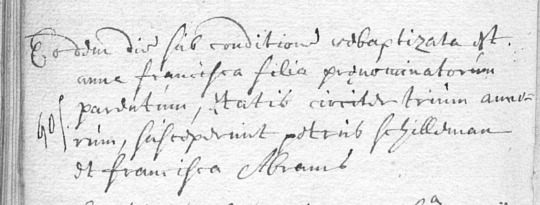 Eodem die sub conditione rebaptizata est.
anna francisca filia prænominatorum
parentum, ætatis circiter trium anno-
rum, susceperunt petrus schilleman
et francisca Abrams